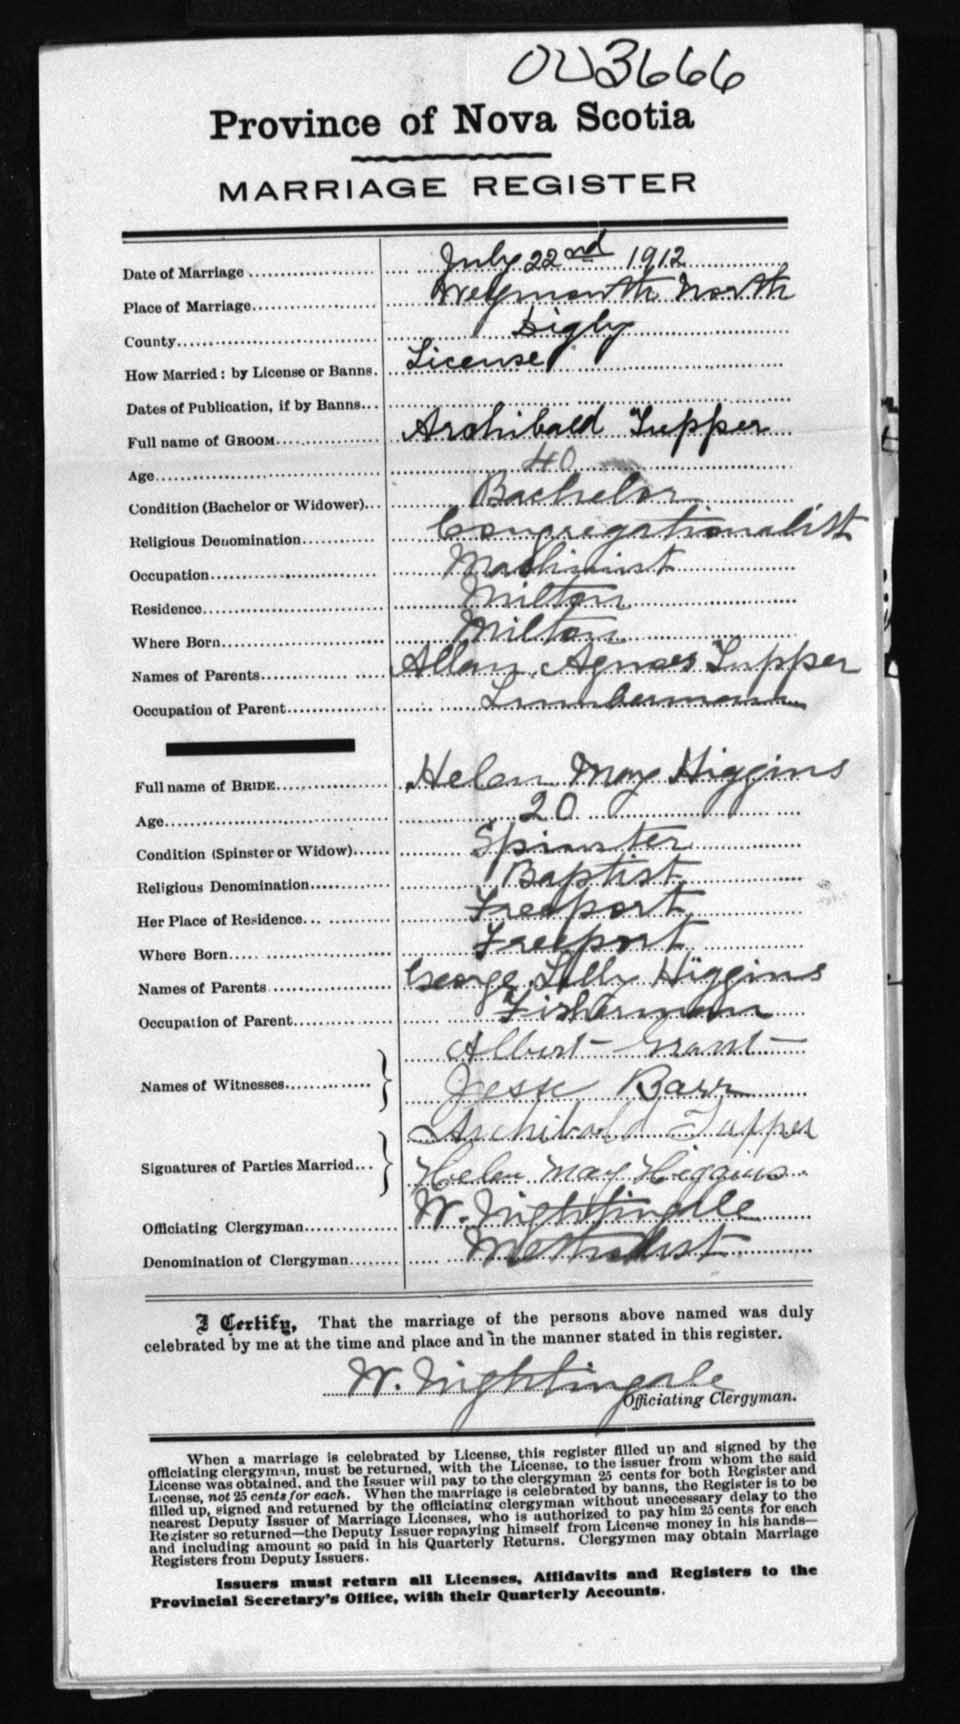 003666
Province of Nova Scotia
MARRIAGE REGISTER
Date of Marriage July 22nd 1912
Place of Marriage Weymouth North
County Digby
How Married: by License or Banns. License
Dates of Publication, if by Banns
Full name of GROOM Archibald Tupper
Age 40
Condition (Bachelor or Widower) Bachelor
Religious Denomination Congregationalist
Occupation Machinist
Residence Milton
Where Born Milton
Names of Parents Allan Agnes Tupper
Occupation of Parent Lumberman
Full name of BRIDE Helen May Higgins
Age 20
Condition (Spinster or Widow) Spinster
Religious Denomination Baptist
Her Place of Residence Freeport
Where Born Freeport
Names of Parents George Lilly Higgins
Occupation of Parent Fisherman
Names of Witnesses Albert Grant
Jesse Barr
Signatures of Parties Married Archibald Tupper
Helen May Higgins
Officiating Clergyman W. Nightingale
Denomination of Clergyman Methodist
I Certify, That the marriage of the persons above named was duly
celebrated by me at the time and place and in the manner stated in this register.
W. Nightingale
Officiating Clergyman.
When a marriage is celebrated by License, this register filled up and signed by the
officiating clergyman, must be returned, with the License, to the issuer from whom the said
License was obtained, and the Issuer will pay to the clergyman 25 cents for both Register and
License, not 25 cents for each. When the marriage is celebrated by banns, the Register is to be
filled up, signed and returned by the officiating clergyman without unnecessary delay to the
nearest Deputy Issuer of Marriage Licenses, who is authorized to pay him 25 cents for each
Register so returned—the Deputy Issuer repaying himself from License money in his hands—
and including amount so paid in his Quarterly Returns. Clergymen may obtain Marriage
Registers from Deputy Issuers.
Issuers must return all Licenses, Affidavits and Registers to the
Provincial Secretary's Office, with their Quarterly Accounts.